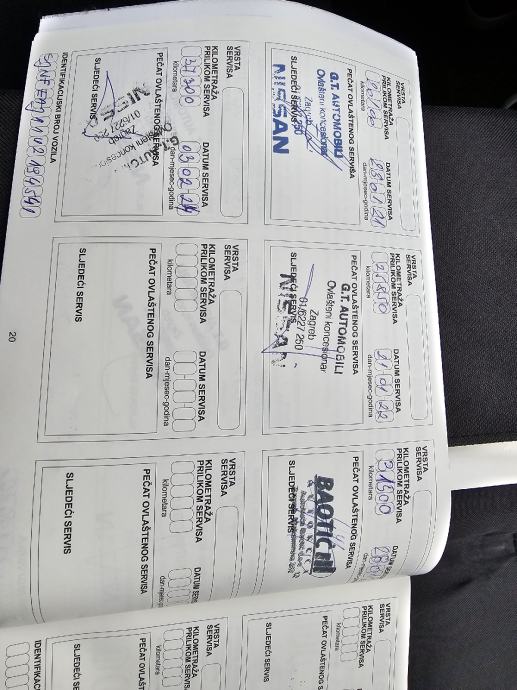 VRSTA
SERVISA
KILOMETRAŽA
PRILIKOM SERVISA
kilometara
DATUM SERVISA
dan-mjesec-godina
23 01 21
PEČAT OVLAŠTENOG SERVISA
G.T. AUTOMOBILI
Ovlašteni koncesionar
Zagreb
SLJEDEĆI SERVIS
NISSAN
VRSTA
SERVISA
KILOMETRAŽA
PRILIKOM SERVISA
kilometara
DATUM SERVISA
dan-mjesec-godina
21 01 22
PEČAT OVLAŠTENOG SERVISA
G.T. AUTOMOBILI
Ovlašteni koncesionar
Zagreb
01/6227 250
SLJEDEĆI SERVIS
NISSAN
VRSTA
SERVISA
KILOMETRAŽA
PRILIKOM SERVISA
31500
kilometara
PEČAT OVLAŠTENOG SERVISA
BAOTIĆ
SLJEDEĆI SERVIS
VRSTA
SERVISA
KILOMETRAŽA
PRILIKOM SERVISA
37300
kilometara
DATUM SERVISA
03 02 24
dan-mjesec-godina
PEČAT OVLAŠTENOG SERVISA
Zagreb
SLJEDEĆI SERVIS
IDENTIFIKACIJSKI BROJ VOZILA
VRSTA
SERVISA
KILOMETRAŽA
PRILIKOM SERVISA
kilometara
DATUM SERVISA
dan-mjesec-godina
PEČAT OVLAŠTENOG SERVISA
SLJEDEĆI SERVIS
VRSTA
SERVISA
KILOMETRAŽA
PRILIKOM SERVISA
kilometara
PEČAT OVLAŠTENOG SERVISA
SLJEDEĆI SERVIS
20
VRSTA
SERVISA
KILOMETRAŽA
PRILIKOM SERVISA
kilometara
PEČAT OVLAŠTENOG
SLJEDEĆI SERVIS
VRSTA
SERVISA
KILOMETRAŽA
PRILIKOM SERVISA
kilometara
PEČAT OVLAŠTENOG
SLJEDEĆI SERVIS